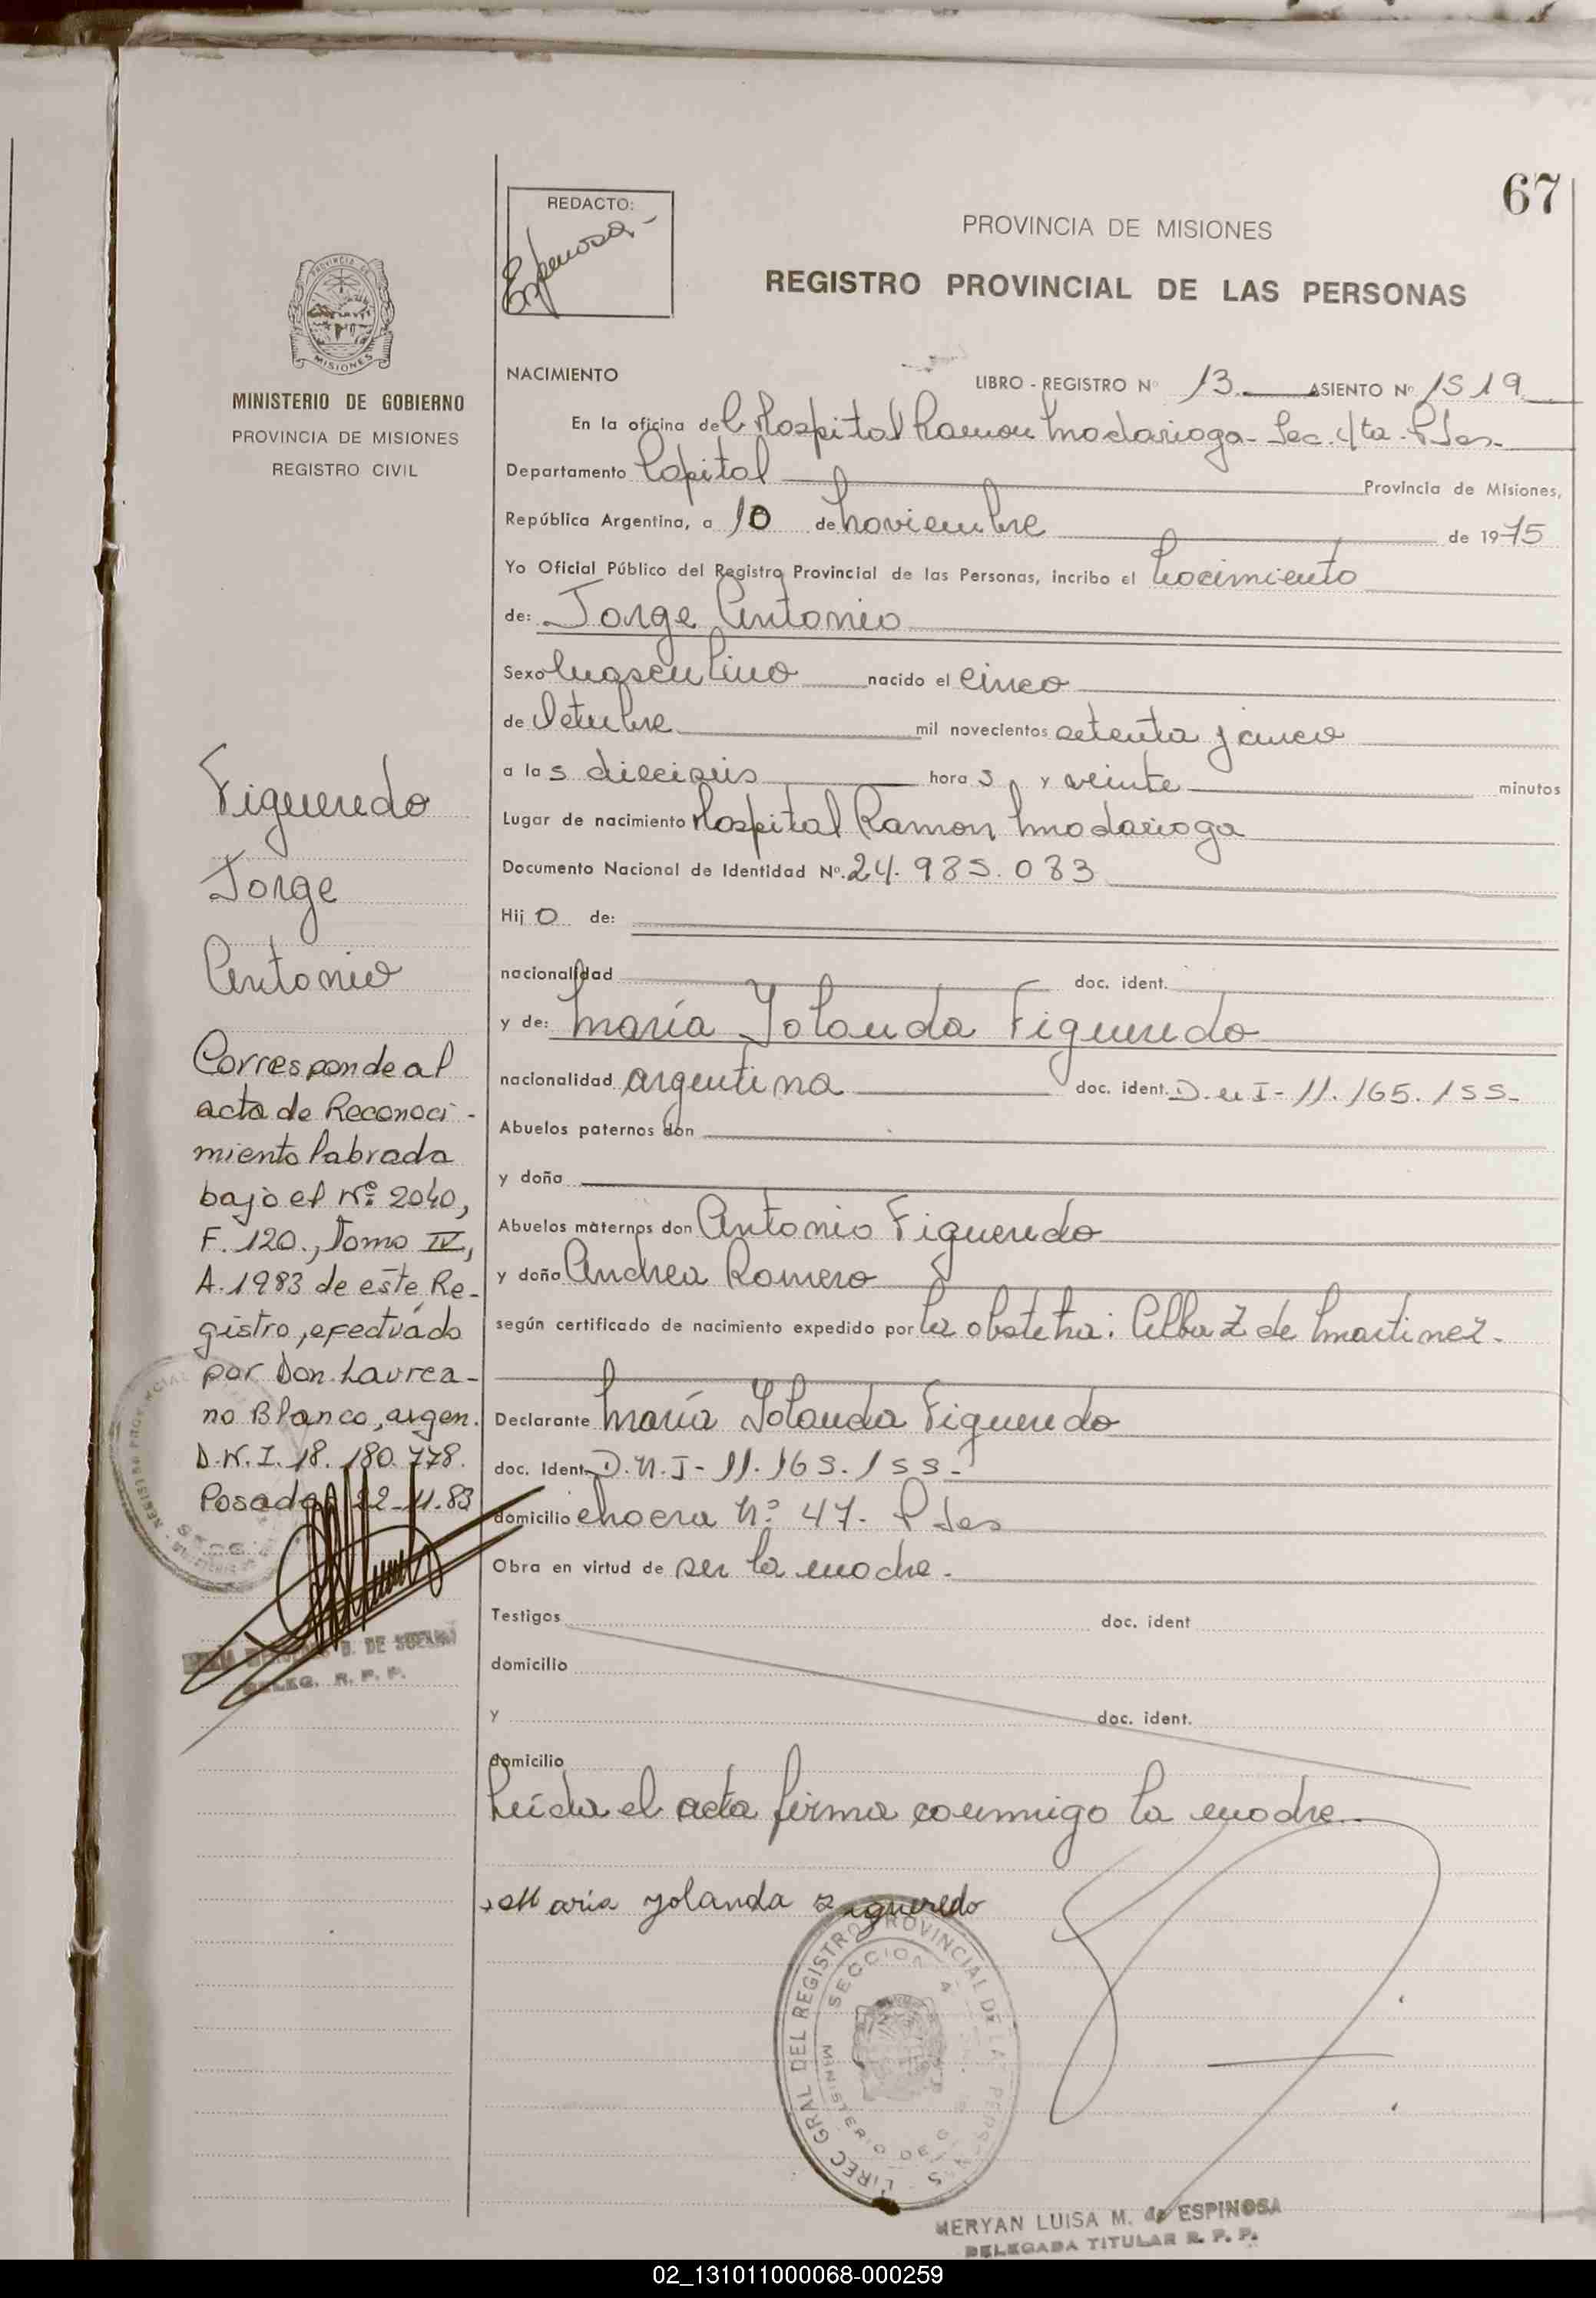 67
REDACTO:
Espinosa-
PROVINCIA DE MISIONES
REGISTRO PROVINCIAL DE LAS PERSONAS
PROVINCIA DE
MISIONES
MINISTERIO DE GOBIERNO
PROVINCIA DE MISIONES
REGISTRO CIVIL
NACIMIENTO
LIBRO - REGISTRO Nº 13 ASIENTO Nº 1519
En la oficina del Hospital Ramon Madariaga - Sec. 4ta. Pdas-
Departamento Capital Provincia de Misiones,
República Argentina, a 10 de noviembre de 1975
Yo Oficial Público del Registro Provincial de las Personas, incribo el nacimiento
de: Jorge Antonio
Sexo masculino nacido el cinco
de Octubre mil novecientos setenta y cinco
a las dieciseis horas y veinte minutos
Lugar de nacimiento Hospital Ramon Madariaga
Documento Nacional de Identidad Nº. 24.985.083
Hijo de:
nacionalidad doc. ident.
y de: María Yolanda Figueredo
nacionalidad argentina doc. ident. D.N.I- 11.165.155-
Abuelos paternos don
y doña
Abuelos maternos don Antonio Figueredo
y doña Andrea Romero
según certificado de nacimiento expedido por la obstetra: Alba Z de Martinez.
Declarante María Yolanda Figueredo
doc. Ident. D.N.I- 11.165.155-
domicilio chacra Nº 47- Pdas
Obra en virtud de ser la madre.
Testigos doc. ident
domicilio
y doc. ident.
domicilio
Leída el acta firma conmigo la madre.
Maria yolanda Figueredo
Figueredo
Jorge
Antonio
Corresponde al
acta de Reconoci-
miento labrada
bajo el Nº: 2040,
F. 120., Tomo IV,
A. 1983 de este Re-
gistro, efectuado
por Don Laurea-
no Blanco, argen.
D.N.I. 18.180.778.
Posadas 22-11-83
B. DE
DELEG. R. P. P.
DIREC GRAL DEL REGISTRO PROVINCIAL DE LAS PERSONAS
SECCION 4
MINISTERIO DE
MERYAN LUISA M. de ESPINOSA
DELEGADA TITULAR R. P. P.
02_131011000068-000259